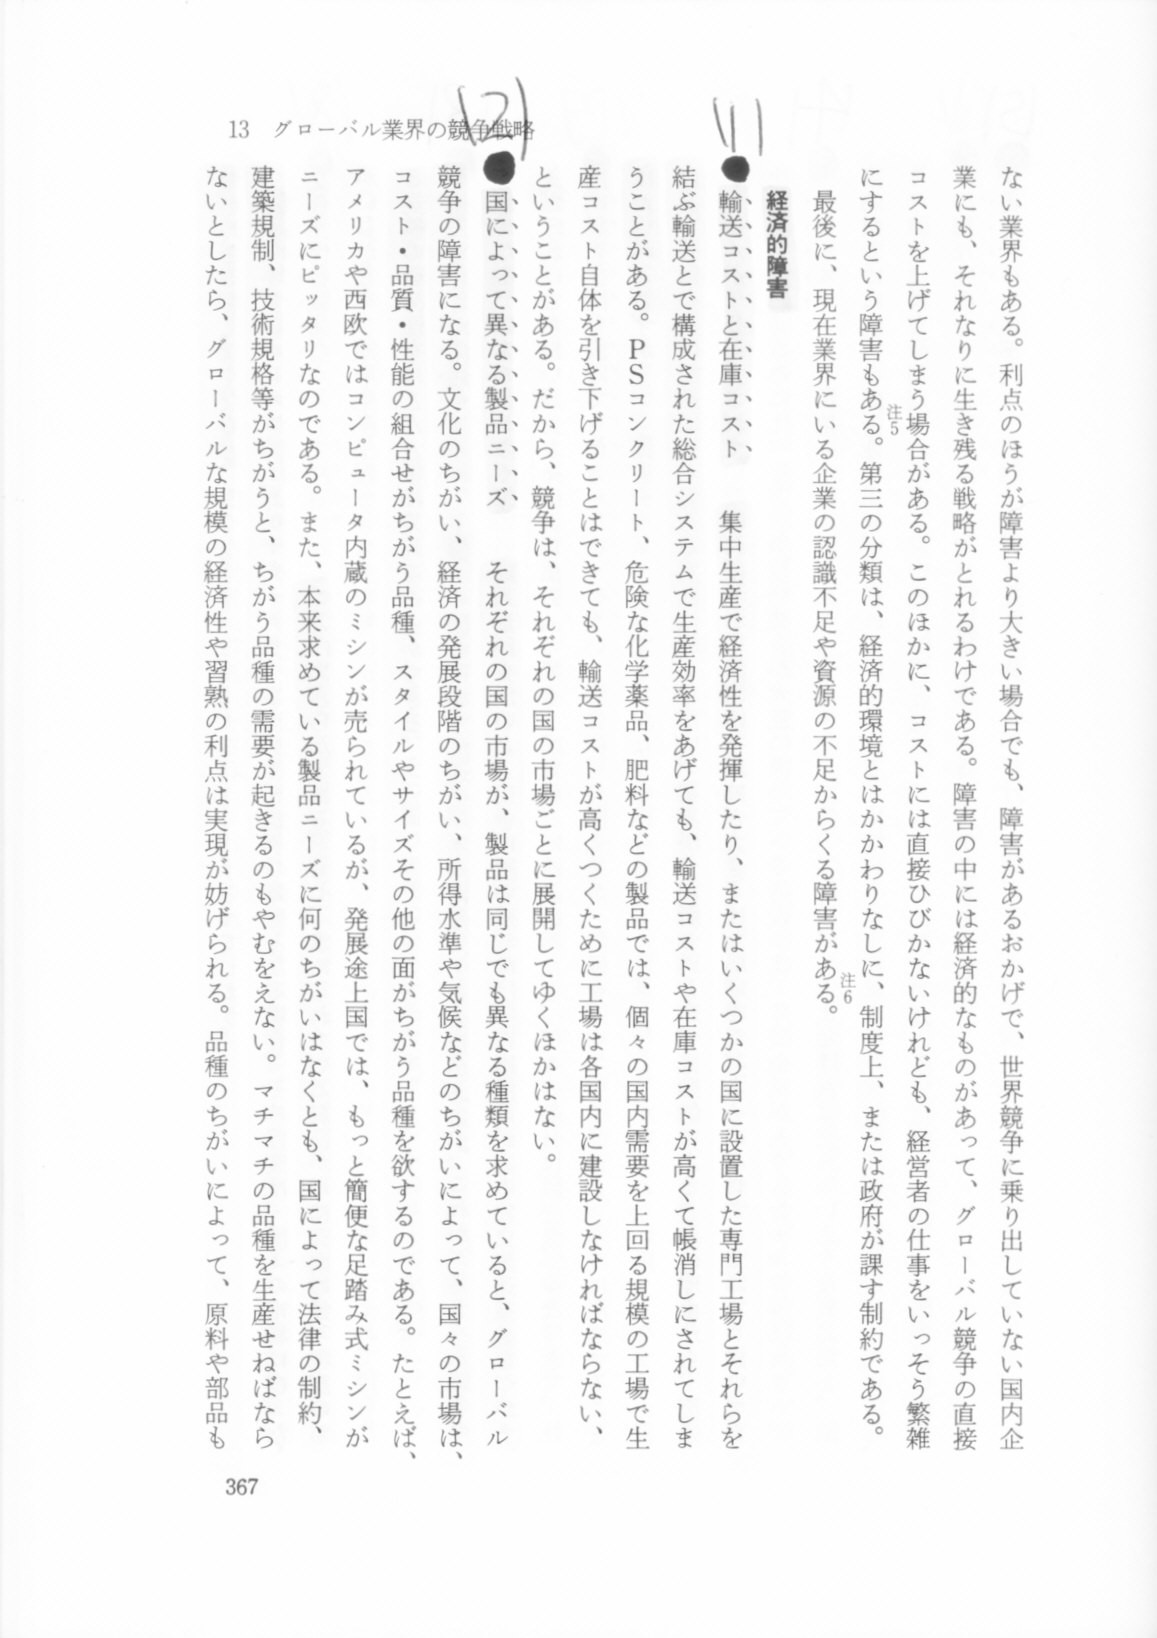 13　グローバル業界の競争戦略
(2)
(1)
ない業界もある。利点のほうが障害より大きい場合でも、障害があるおかげで、世界競争に乗り出していない国内企
業にも、それなりに生き残る戦略がとれるわけである。障害の中には経済的なものがあって、グローバル競争の直接
コストを上げてしまう場合がある。このほかに、コストには直接ひびかないけれども、経営者の仕事をいっそう繁雑
にするという障害もある。注5 第三の分類は、経済的環境とはかかわりなしに、制度上、または政府が課す制約である。
最後に、現在業界にいる企業の認識不足や資源の不足からくる障害がある。注6
経済的障害
●輸送コストと在庫コスト　集中生産で経済性を発揮したり、またはいくつかの国に設置した専門工場とそれらを
結ぶ輸送とで構成された総合システムで生産効率をあげても、輸送コストや在庫コストが高くて帳消しにされてしま
うことがある。PSコンクリート、危険な化学薬品、肥料などの製品では、個々の国内需要を上回る規模の工場で生
産コスト自体を引き下げることはできても、輸送コストが高くつくために工場は各国内に建設しなければならない、
ということがある。だから、競争は、それぞれの国の市場ごとに展開してゆくほかはない。
●国によって異なる製品ニーズ　それぞれの国の市場が、製品は同じでも異なる種類を求めていると、グローバル
競争の障害になる。文化のちがい、経済の発展段階のちがい、所得水準や気候などのちがいによって、国々の市場は、
コスト・品質・性能の組合せがちがう品種、スタイルやサイズその他の面がちがう品種を欲するのである。たとえば、
アメリカや西欧ではコンピュータ内蔵のミシンが売られているが、発展途上国では、もっと簡便な足踏み式ミシンが
ニーズにピッタリなのである。また、本来求めている製品ニーズに何のちがいはなくとも、国によって法律の制約、
建築規制、技術規格等がちがうと、ちがう品種の需要が起きるのもやむをえない。マチマチの品種を生産せねばなら
ないとしたら、グローバルな規模の経済性や習熟の利点は実現が妨げられる。品種のちがいによって、原料や部品も
367